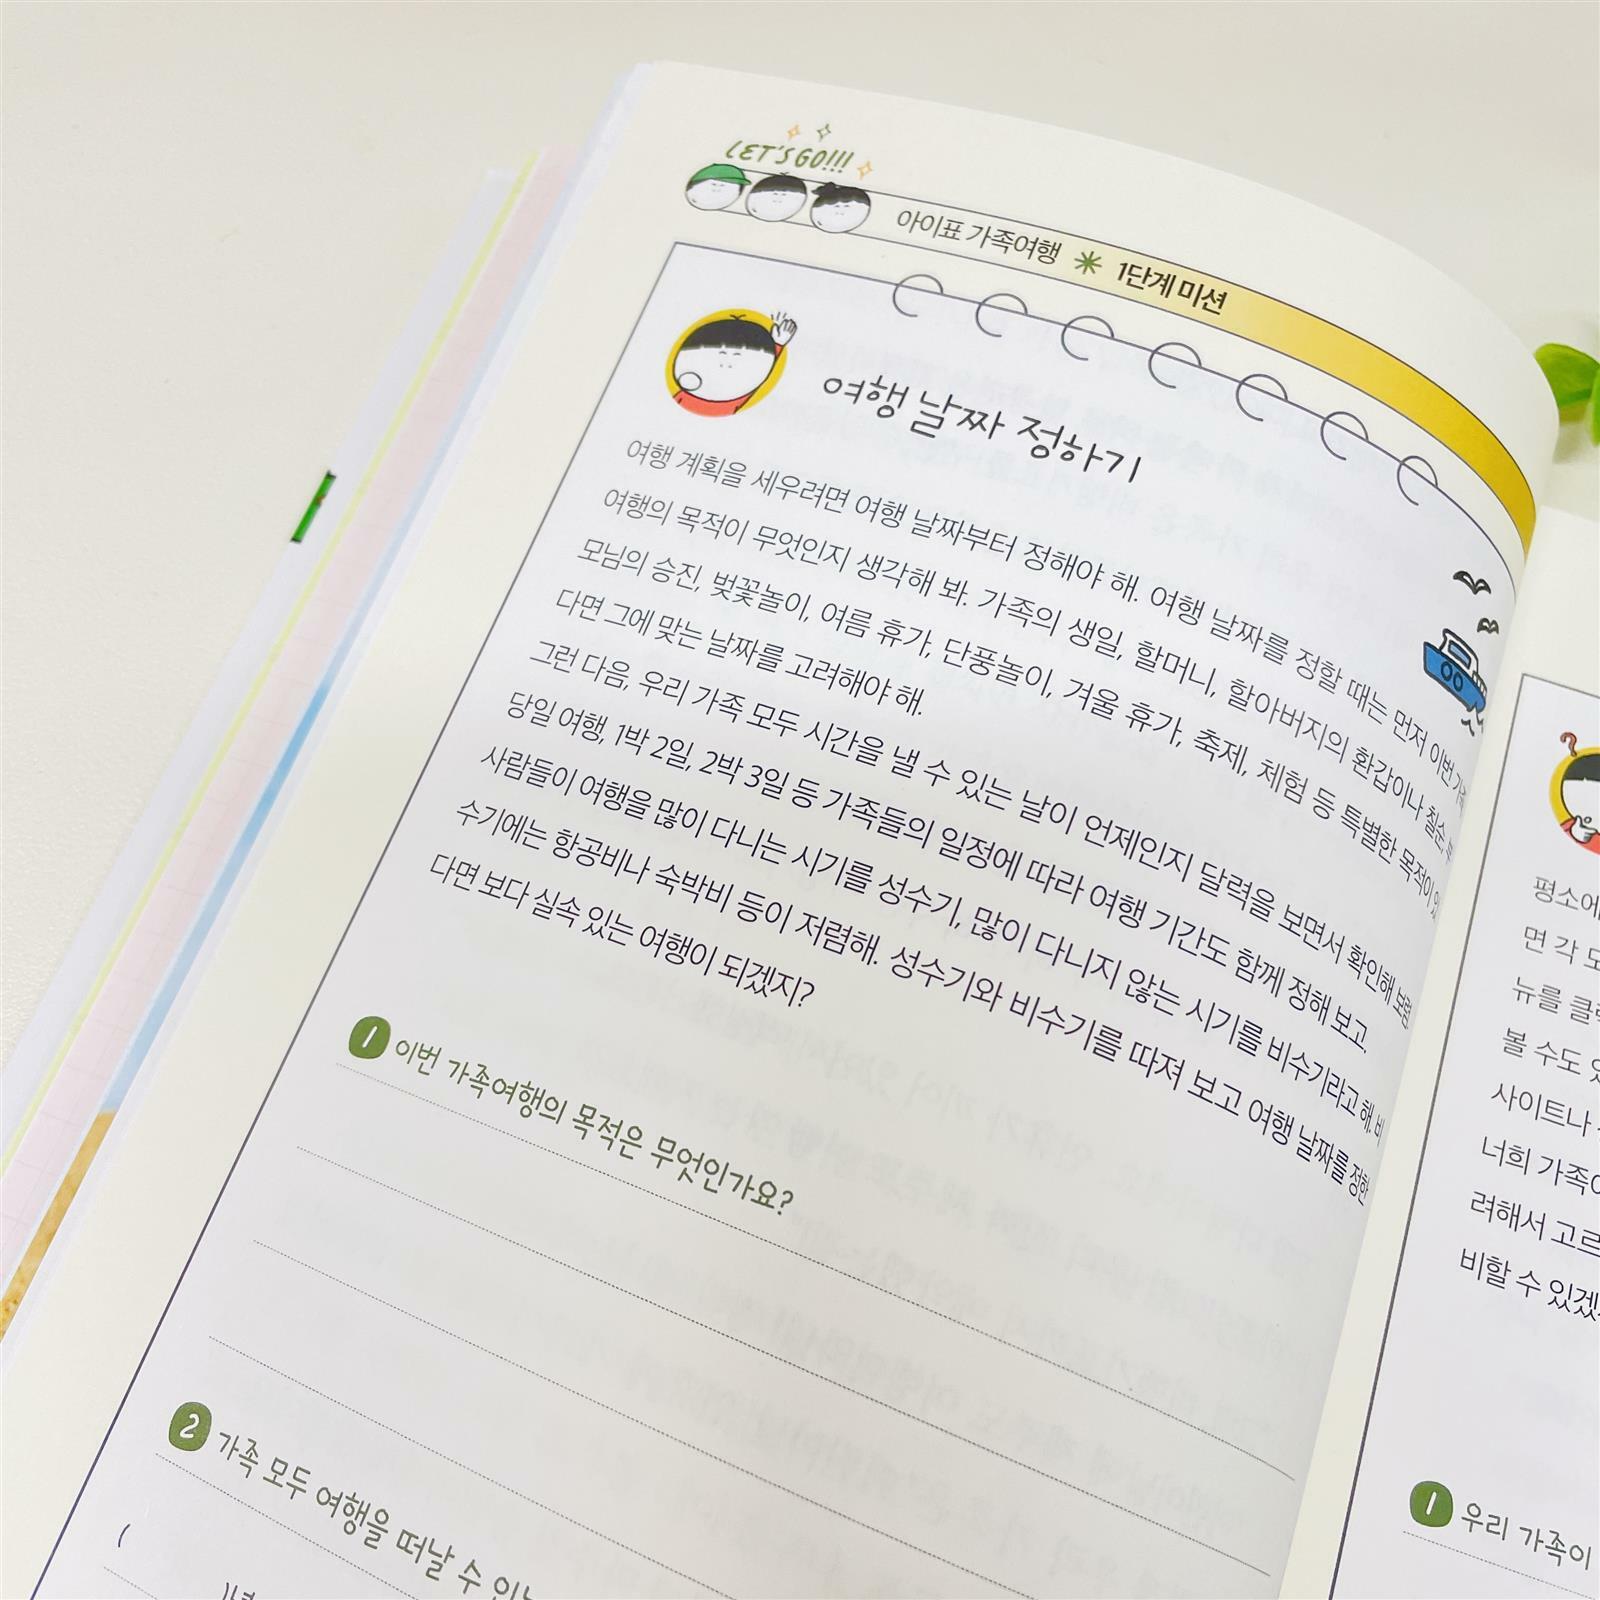 LET'S GO!!!
아이표 가족여행 ✳ 1단계 미션
여행 날짜 정하기
여행 계획을 세우려면 여행 날짜부터 정해야 해. 여행 날짜를 정할 때는 먼저 이번
여행의 목적이 무엇인지 생각해 봐. 가족의 생일, 할머니, 할아버지의 환갑이나 칠순, 부
모님의 승진, 벚꽃놀이, 여름 휴가, 단풍놀이, 겨울 휴가, 축제, 체험 등 특별한 목적이 있
다면 그에 맞는 날짜를 고려해야 해.
그런 다음, 우리 가족 모두 시간을 낼 수 있는 날이 언제인지 달력을 보면서 확인해 보렴.
당일 여행, 1박 2일, 2박 3일 등 가족들의 일정에 따라 여행 기간도 함께 정해 보고.
사람들이 여행을 많이 다니는 시기를 성수기, 많이 다니지 않는 시기를 비수기라고 해. 비
수기에는 항공비나 숙박비 등이 저렴해. 성수기와 비수기를 따져 보고 여행 날짜를 정한
다면 보다 실속 있는 여행이 되겠지?
1 이번 가족여행의 목적은 무엇인가요?
2 가족 모두 여행을 떠날 수
(
평소에
면 각
뉴를
볼 수도
사이트나
너희
려해서
비할 수
1 우리 가족이